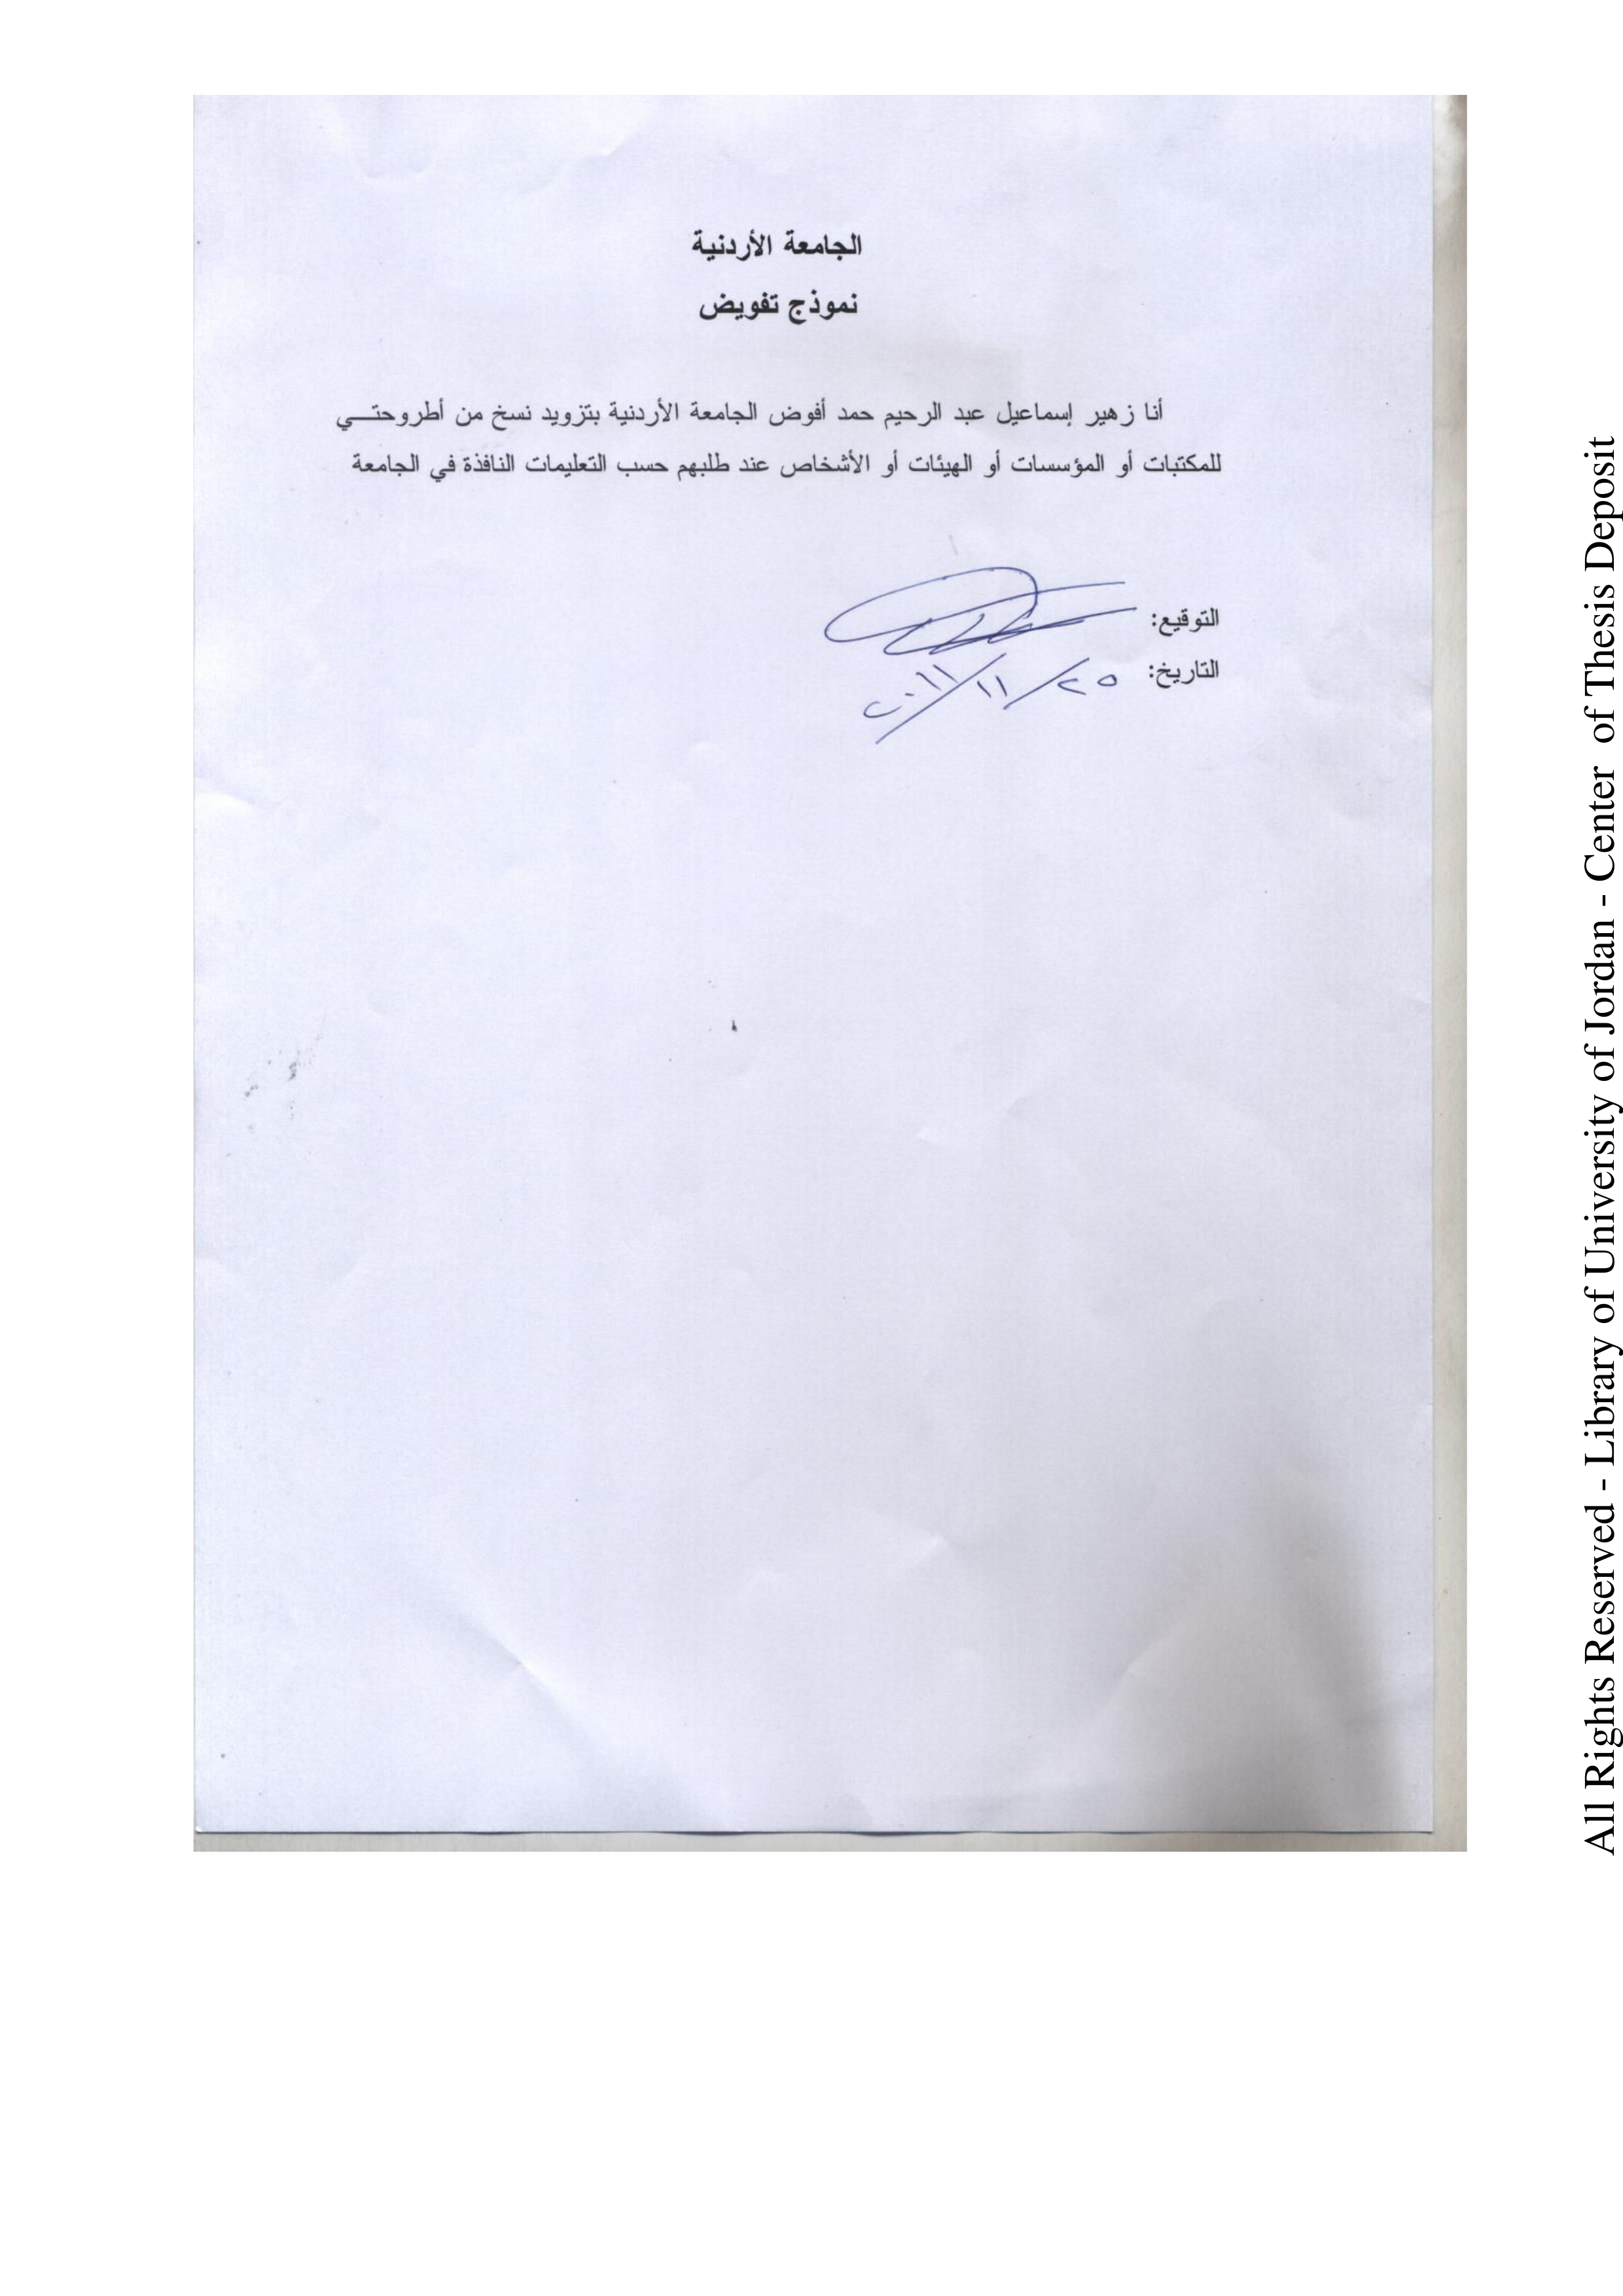 الجامعة الأردنية
نموذج تفويض
أنا زهير إسماعيل عبد الرحيم حمد أفوض الجامعة الأردنية بتزويد نسخ من أطروحتـــي
للمكتبات أو المؤسسات أو الهيئات أو الأشخاص عند طلبهم حسب التعليمات النافذة في الجامعة
التوقيع:
التاريخ: ٢٥/ ١١/ ٢٠١١
All Rights Reserved - Library of University of Jordan - Center of Thesis Deposit